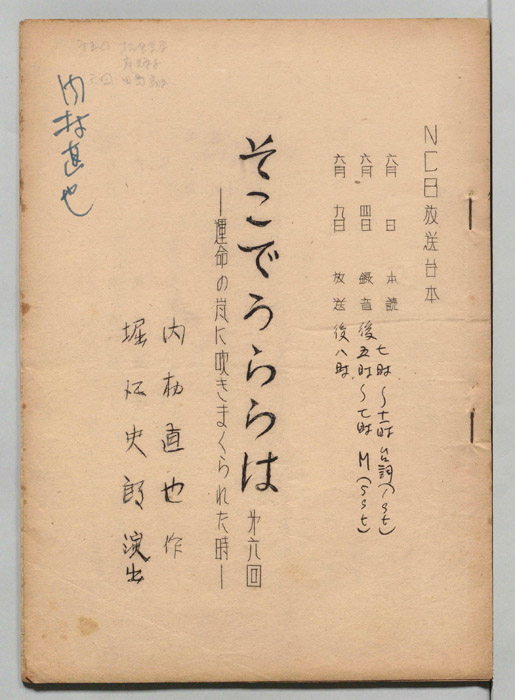 NCB放送台本
六月 日 本読
六月 四日 録音 後五時〜七時 M(SSt)
七時〜十一時 台詞(1St)
六月 九日 放送 後八時
そこでうららは 第六回
—運命の嵐に吹きまくられた時—
内村直也 作
堀江史朗 演出
内村直也